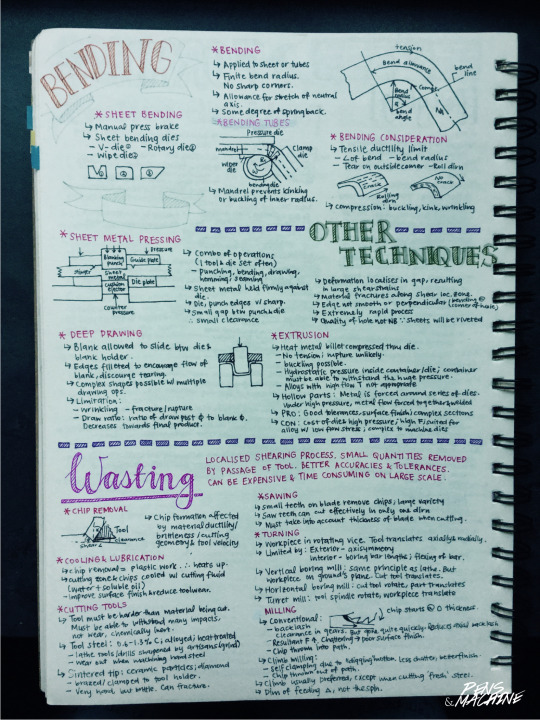 BENDING
*BENDING
↳ Applied to sheet or tubes
↳ Finite bend radius.
No sharp corners.
↳ Allowance for stretch of neutral
axis.
↳ Some degree of springback.
tension
Bend allowance
bend
line
Bend
radius
bend
angle
NA
*SHEET BENDING
↳ Manual press brake
↳ Sheet bending dies
- V-die① - Rotary die③
- Wipe die②
*BENDING TUBES
Pressure die
mandrel
Clamp
die
wiper
die
bending die
↳ Mandrel prevents kinking
or buckling of inner radius.
*BENDING CONSIDERATION
↳ Tensile ductility limit
- ∠ of bend - bend radius
- Tear on outside corner - Roll dirn
Crack
Rolling
dirn
No
crack
↳ compression - buckling, kink, wrinkling
*SHEET METAL PRESSING
Pressure
Blanking
punch
Guide plate
Sheet
metal
cushion
ejector
Die plate
Counter
pressure
↳ Combo of operations
(1 tool & die set often)
- punching, bending, drawing,
hemming, seaming
↳ Sheet metal held firmly against
die.
↳ Die, punch edges v. sharp.
↳ Small gap btw punch & die
∴ small clearance
OTHER
TECHNIQUES
↳ Deformation localises in gap, resulting
in large shear strains
↳ Material fractures along shear loc. zone.
↳ Edge not smooth or perpendicular (bending @
corner of hole)
↳ Extremely rapid process
↳ Quality of hole not NB ∵ sheets will be riveted
*DEEP DRAWING
↳ Blank allowed to slide btw die &
blank holder.
↳ Edges filleted to encourage flow of
blank, discourage tearing.
↳ Complex shapes possible w/ multiple
drawing ops.
↳ Limitation:
- Wrinkling - fracture/rupture
- Draw ratio: ratio of draw post ϕ to blank ϕ.
Decreases towards final product.
*EXTRUSION
↳ Heat metal billet compressed thru die.
- No tension ∴ rupture unlikely.
- buckling possible.
- Hydrostatic pressure inside container/die; container
must be able to withstand the huge pressure.
- Alloys with high flow T not appropriate
↳ Hollow parts: Metal is forced around series of dies.
Under high pressure, metal flow forced together & welded
↳ PRO: Good tolerances, surface finish; complex sections
↳ CON: cost of dies high; pressure, high T; suited for
alloy w/ low flow stress; complex to machine dies
Wasting
LOCALISED SHEARING PROCESS, SMALL QUANTITIES REMOVED
BY PASSAGE OF TOOL. BETTER ACCURACIES & TOLERANCES.
CAN BE EXPENSIVE & TIME CONSUMING ON LARGE SCALE.
*CHIP REMOVAL
Tool
clearance
shear ∠
↳ Chip formation affected
by material ductility/
brittleness/cutting
geometry & tool velocity
*COOLING & LUBRICATION
↳ chip removal = plastic work ∴ heats up.
↳ cutting zone & chips cooled w/ cutting fluid
(water + soluble oil)
- improve surface finish & reduce tool wear.
*CUTTING TOOLS
↳ Tool must be harder than material being cut.
Must be able to withstand many impacts,
not wear, chemically inert
↳ Tool steel: 0.6-1.3% C; alloyed; heat treated
- lathe tools/drills sharpened by artisans (grind)
- wear out when machining hard steel
↳ Sintered tip: ceramic particles; diamond
- brazed/clamped to tool holder.
- Very hard, but brittle. Can fracture.
*SAWING
↳ small teeth on blade remove chips; large variety
↳ Saw teeth can cut effectively in only one dirn
↳ Must take into account thickness of blade when cutting.
*TURNING
↳ Workpiece in rotating vice. Tool translates axially & radially.
↳ Limited by: Exterior - axisymmetry
Interior - boring bar lengths; flexing of bar.
↳ Vertical boring mill: same principle as lathe. But
workpiece on ground's plane. Cut tool translates.
↳ Horizontal boring mill: cut tool rotate, part translates
↳ Turret mill: tool spindle rotate, workpiece translate
MILLING
↳ Conventional:
chip starts @ 0 thickness.
- backlash
clearance in gears.
- Resultant F ↑. Chattering → poor surface finish.
- Chip thrown into path.
↳ Climb milling:
- Chip thrown out of path.
↳ Climb usually preferred, except when cutting 'fresh' steel.
↳ Dirn of feeding Δ, not the sph.
PENS
& MACHINE